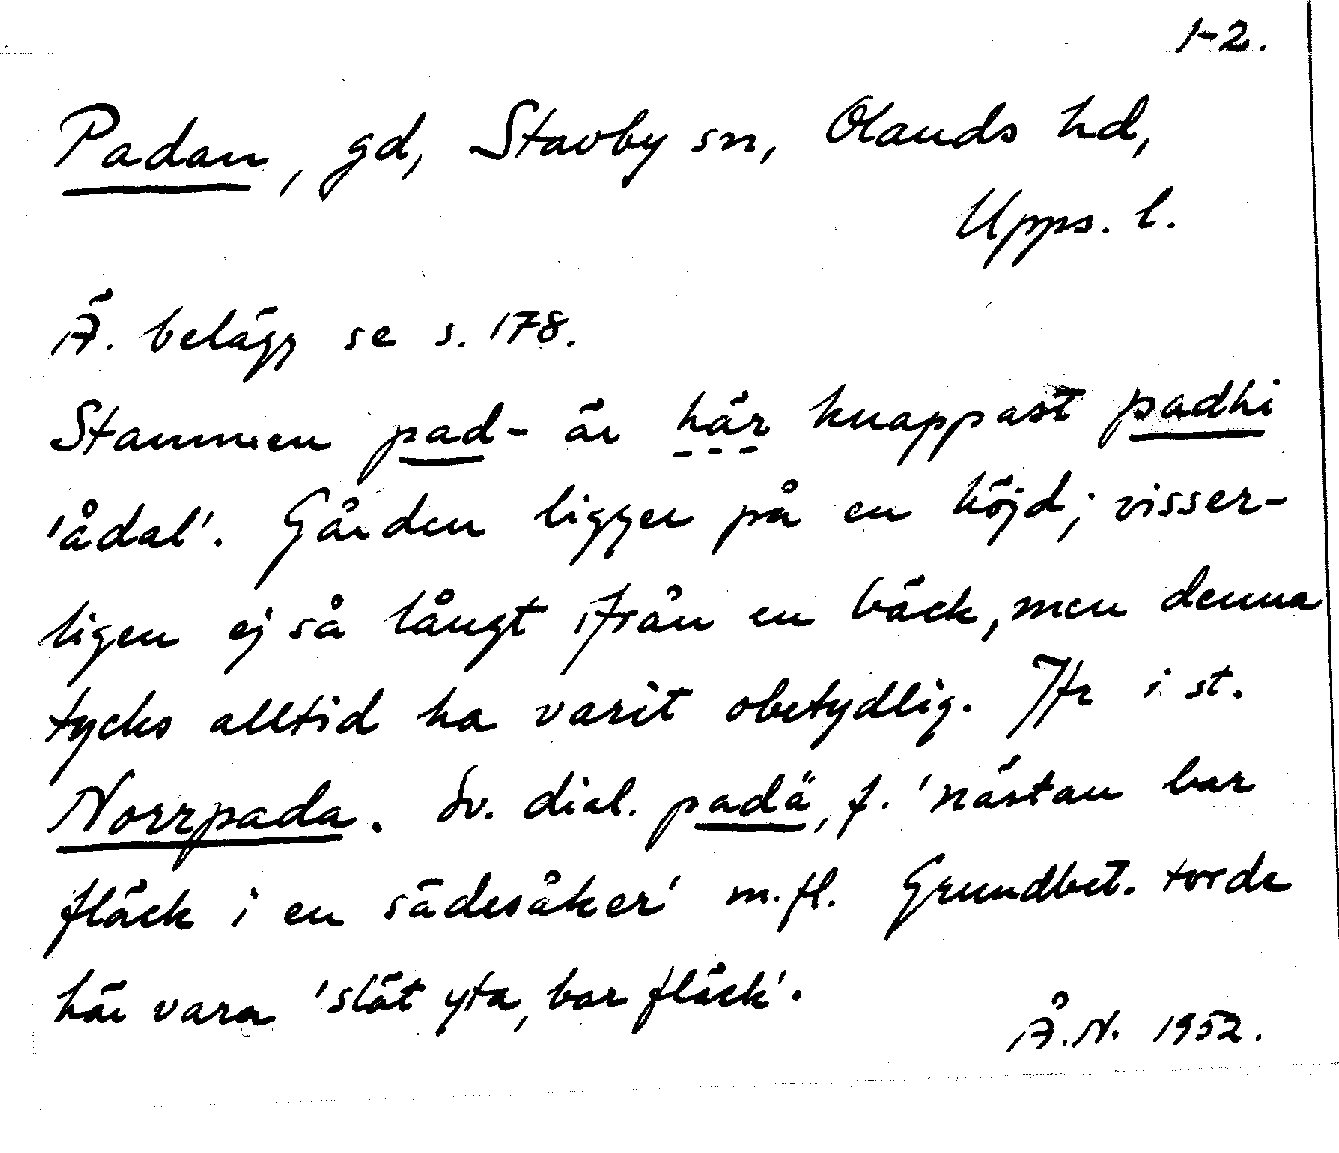 1-2.
Padan, gd, Stavby sn, Olands hd,
Upps. l.
Ä. belägg se s. 178.
Stammen pad- är här knappast padhi
'ådal'. Gården ligger på en höjd; visser-
ligen ej så långt ifrån en bäck, men denna
tycks alltid ha varit obetydlig. Jfr i st.
Norrpada. Sv. dial. padä, f. 'nästan bar
fläck i en sädesåker' m.fl. Grundbet. torde
här vara 'slät yta, bar fläck'.
Å.N. 1952.